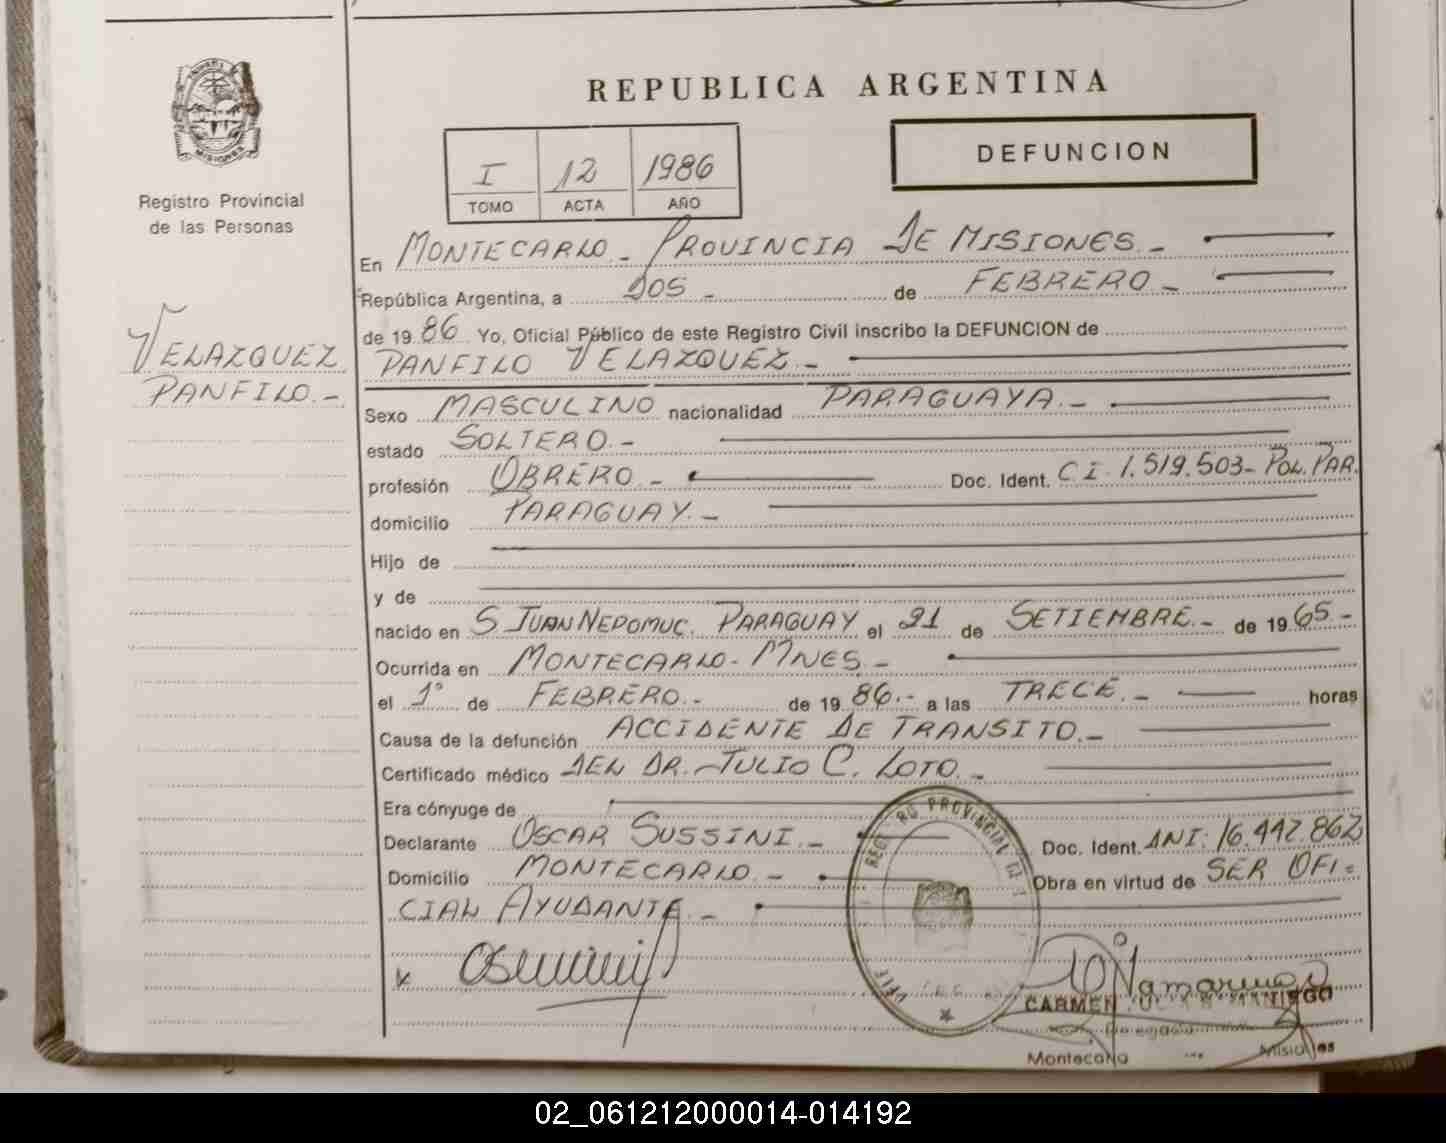 REPUBLICA ARGENTINA
MISIONES
Registro Provincial
de las Personas
I 12 1986
TOMO ACTA AÑO
DEFUNCION
VELAZQUEZ
PANFILO.-
En MONTECARLO.- PROVINCIA DE MISIONES.-
República Argentina, a DOS.- de FEBRERO.-
de 1986 Yo, Oficial Público de este Registro Civil inscribo la DEFUNCION de
PANFILO VELAZQUEZ.-
Sexo MASCULINO nacionalidad PARAGUAYA.-
estado SOLTERO.-
profesión OBRERO.- Doc. Ident. C.I. 1.519.503- POL. PAR.
domicilio PARAGUAY.-
Hijo de
y de
nacido en S. JUAN NEPOMUC. PARAGUAY el 21 de SETIEMBRE.- de 1965.-
Ocurrida en MONTECARLO- MNES.-
el 1° de FEBRERO.- de 1986.- a las TRECE.- horas
Causa de la defunción ACCIDENTE DE TRANSITO.-
Certificado médico DEL DR. JULIO C. LOTO.-
Era cónyuge de
Declarante OSCAR SUSSINI.- Doc. Ident. DNI: 16.442.862
Domicilio MONTECARLO.- Obra en virtud de SER OFI=
CIAL AYUDANTE.-
REGISTRO PROVINCIAL DE
CARMEN
Delegada
Montecarlo Misiones
02_061212000014-014192